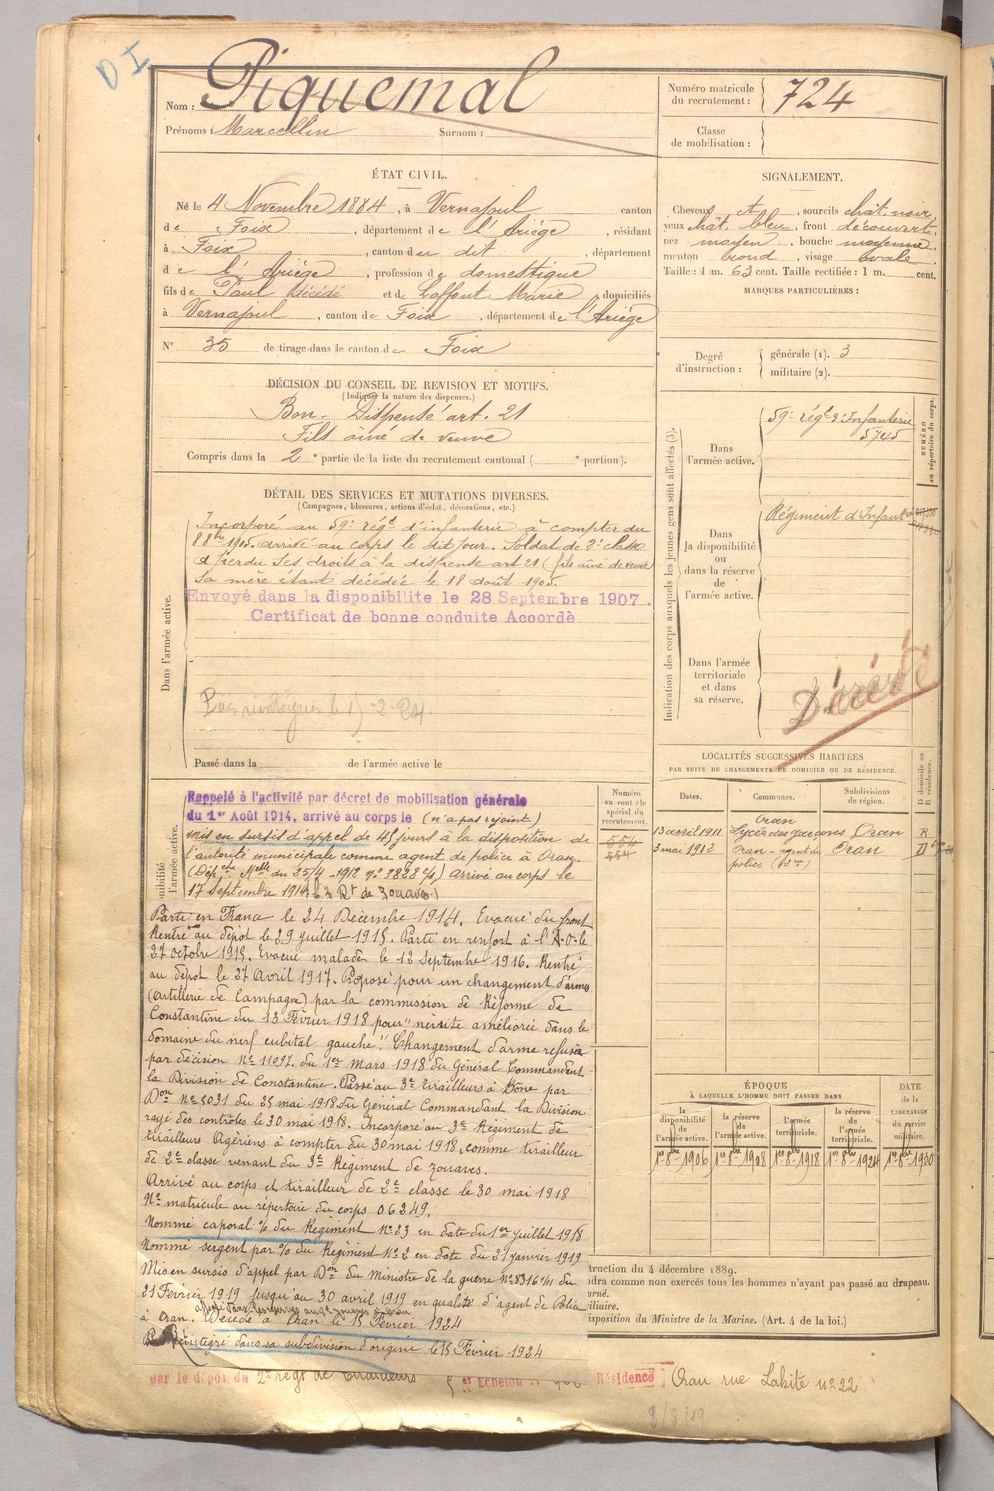 D I
Nom : Piquemal
Prénoms : Marcellin Surnom :
Numéro matricule
du recrutement : 724
Classe
de mobilisation :
ÉTAT CIVIL.
Né le 4 Novembre 1884, à Vernajoul canton
de Foix, département de l'Ariège, résidant
à Foix, canton du dit département
de l'Ariège, profession de domestique
fils de Paul décédé et de Laffont Marie, domiciliés
à Vernajoul, canton de Foix, département de l'Ariège
N° 35 de tirage dans le canton de Foix
SIGNALEMENT.
Cheveux et, sourcils chât. noir,
yeux chât. bleu, front découvert,
nez moyen, bouche moyenne,
menton rond, visage ovale
Taille : 1 m. 63 cent. Taille rectifiée : 1 m. cent.
MARQUES PARTICULIÈRES :
Degré
d'instruction :
générale (1). 3
militaire (2).
DÉCISION DU CONSEIL DE REVISION ET MOTIFS.
(Indiquer la nature des dispenses.)
Bon - Dispensé art. 21
Fils aîné de veuve
Compris dans la 2e partie de la liste du recrutement cantonal ( e portion).
DÉTAIL DES SERVICES ET MUTATIONS DIVERSES.
(Campagnes, blessures, actions d'éclat, décorations, etc.)
Dans l'armée active.
Incorporé au 59e régt d'infanterie à compter du
8 8bre 1905. arrivé au corps le dit jour. Soldat de 2e classe
a perdu ses droits à la dispense art 21 (fils aîné de veuve)
sa mère étant décédée le 18 août 1905.
Envoyé dans la disponibilite le 28 Septembre 1907.
Certificat de bonne conduite Acoordè
Passé dans la de l'armée active le
Indication des corps auxquels les jeunes gens sont affectés (3).
Dans
l'armée active.
59e régt d'Infanterie
5745
NUMÉRO
au répertoire du corps.
Dans
la disponibilité
ou
dans la réserve
de
l'armée active.
Régiment d'Infanterie
Dans l'armée
territoriale
et dans
sa réserve.
Décédé
LOCALITÉS SUCCESSIVES HABITÉES
PAR SUITE DE CHANGEMENTS DE DOMICILE OU DE RÉSIDENCE.
Dates. Communes. Subdivisions
de région.
D domicile ou
R résidence.
13 avril 1911 Oran Lycée des garçons Oran R
3 mai 1912 Oran - agent de police Oran D
Numéro
au contrôle
spécial du
recrutement.
554
554
Rappelé à l'activité par décret de mobilisation générale
du 1er Août 1914, arrivé au corps le (n'a pas rejoint)
mis en sursis d'appel de 45 jours à la disposition de
l'autorité municipale comme agent de police à Oran.
arrivé au corps le
17 Septembre 1914 (3 Rt de Zouaves)
Parti en France le 24 Décembre 1914. Evacué du front
Rentré au dépôt le 29 juillet 1915. Parti en renfort à l'A.O. le
27 octobre 1915. Evacué malade le 12 Septembre 1916. Rentré
au dépôt le 27 Avril 1917. Proposé pour un changement d'arme
(artillerie de Campagne) par la commission de Réforme de
Constantine du 13 Février 1918 pour "névrite améliorée dans le
domaine du nerf cubital gauche". Changement d'arme refusée
par décision No 11097 du 1er Mars 1918 du Général Commandant
la Division de Constantine. Passé au 3e tirailleurs à Bône par
Don No 5031 du 25 mai 1918 du Général Commandant la Division
rayé des contrôles le 30 mai 1918. Incorporé au 3e Régiment de
tirailleurs Algériens à compter du 30 mai 1918, comme tirailleur
de 2e classe venant du 3e Régiment de zouaves.
Arrivé au corps et tirailleur de 2e classe le 30 mai 1918
No matricule au répertoire du corps 06249.
Nommé caporal % du Régiment No 23 en date du 1er juillet 1918
Nommé sergent par % du Régiment No 2 en date du 21 janvier 1919
Mis en sursis d'appel par Don du Ministre de la guerre No 8316 1/11 du
21 Février 1919 jusqu'au 30 avril 1919 en qualité d'agent de Police
à Oran. Décédé à Oran le 15 Février 1924
Réintégré dans sa subdivision d'origine le 15 Février 1924
par le dépôt du 2e régt de Tirailleurs
Echelon
Résidence Oran rue Lahite no 22
8/8/19
ÉPOQUE
À LAQUELLE L'HOMME DOIT PASSER DANS
la
disponibilité
de
l'armée active.
la réserve
de
l'armée active.
l'armée
territoriale.
la réserve
de
l'armée
territoriale.
DATE
de la
LIBÉRATION
du service
militaire.
1er 8bre 1906 1er 8bre 1908 1er 8bre 1918 1er 8bre 1924 1er 8bre 1930
truction du 4 décembre 1889.
dra comme non exercés tous les hommes n'ayant pas passé au drapeau.
urné.
iliaire.
isposition du Ministre de la Marine. (Art. 4 de la loi.)